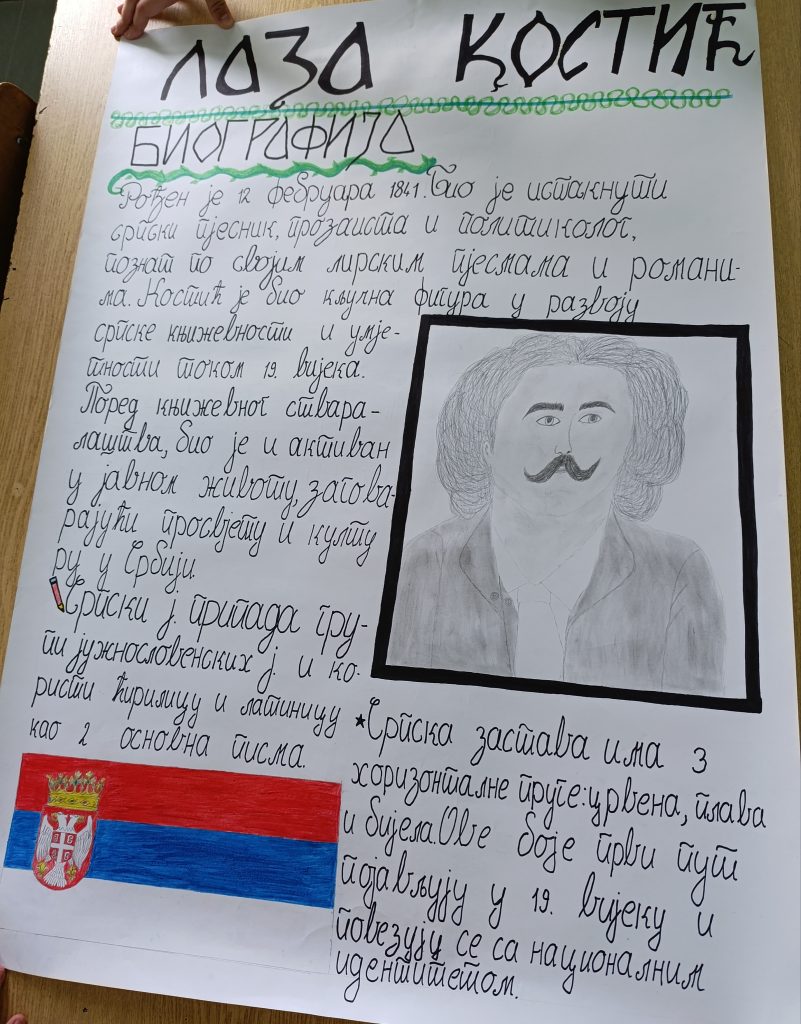 ЛАЗА КОСТИЋ
БИОГРАФИЈА
Рођен је 12 фебруара 1841. Био је истакнути
српски пјесник, прозаиста и политиколог,
познат по својим лирским пјесмама и романи-
ма. Костић је био кључна фигура у развоју
српске књижевности и умје-
тности током 19. вијека.
Поред књижевног ствара-
лаштва, био је и активан
у јавном животу, загова-
рајући просвјету и култу
ру у Србији.
Српски ј. припада гру-
пи јужнословенских ј. и ко-
ристи ћирилицу и латиницу
као 2 основна писма.
★Српска застава има 3
хоризонталне пруге: црвена, плава
и бијела. Ове боје први пут
појављују у 19. вијеку и
повезују се са националним
идентитетом.